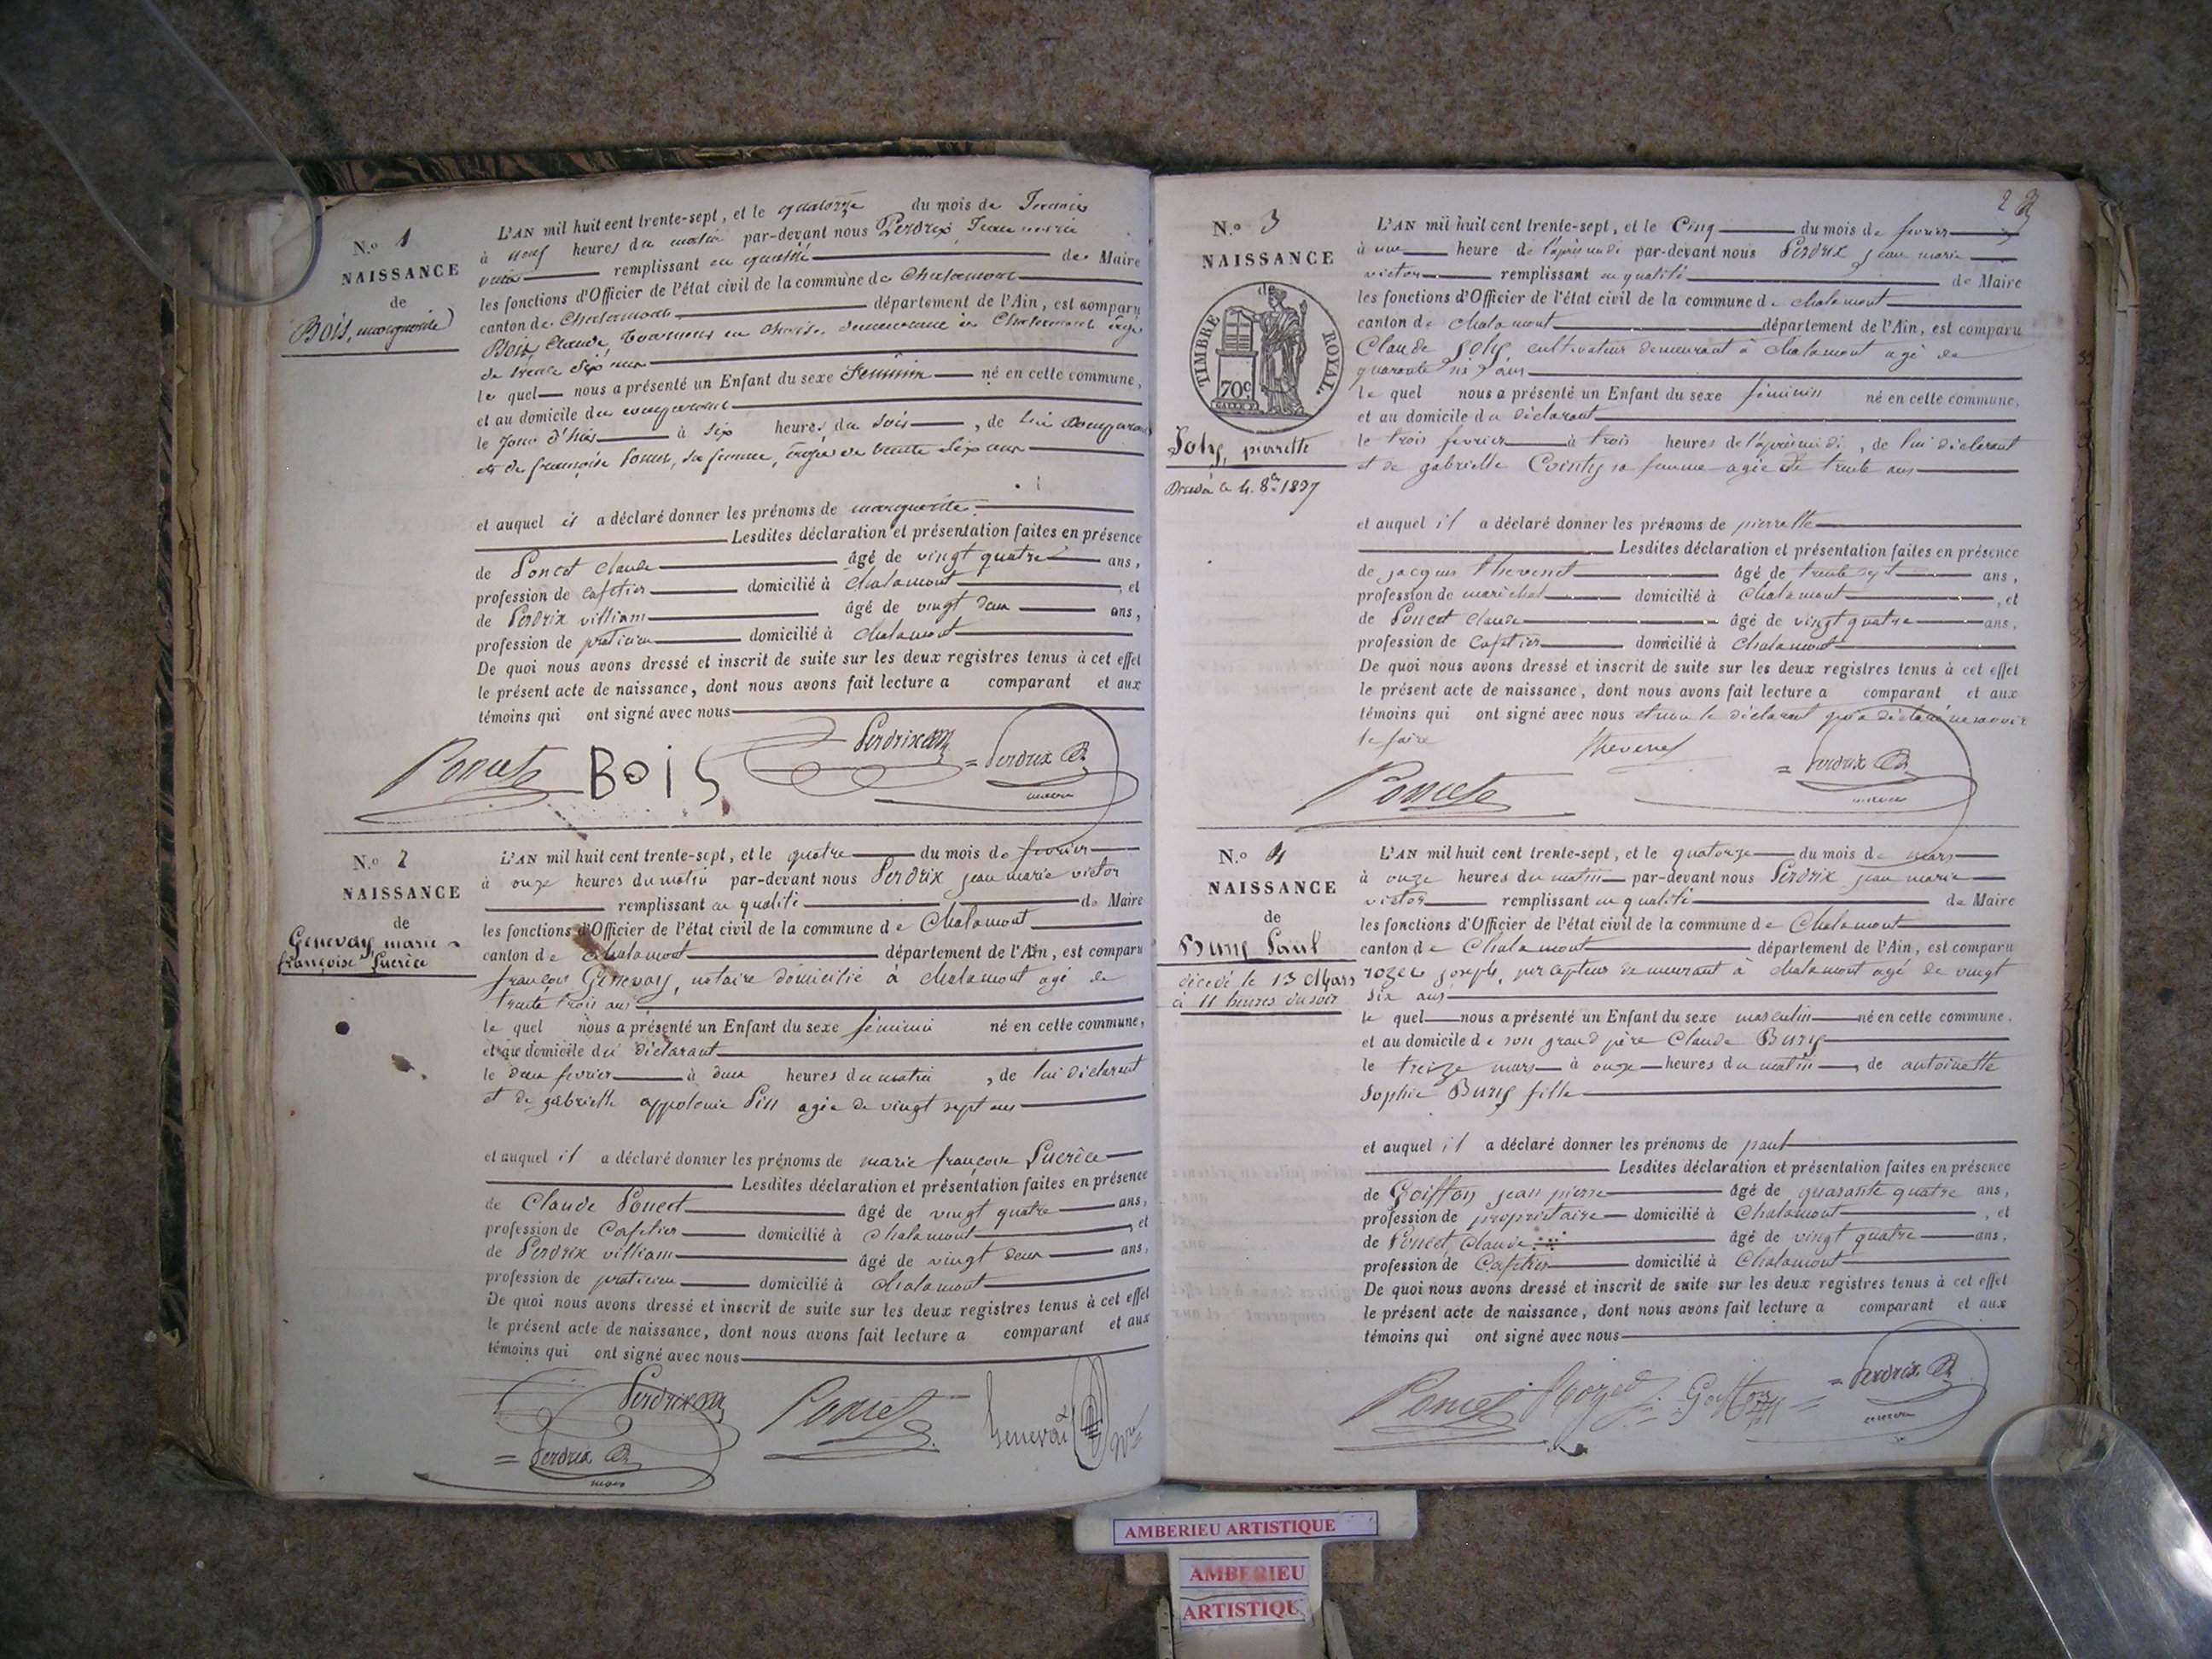 N.º 1
NAISSANCE
de
Bois, marguerite
L'AN mil huit cent trente-sept, et le quatorze du mois de Janvier
à neuf heures du matin par-devant nous Perdrix, Jean marie
victor remplissant en qualité de Maire
les fonctions d'Officier de l'état civil de la commune de Chalamont
canton de Chalamont département de l'Ain, est comparu
Bois, Claude, demeurant à Chalamont âgé
de trente six ans
le quel nous a présenté un Enfant du sexe féminin né en cette commune,
et au domicile du comparant
le jour d'hier à six heures du soir, de lui comparant
et de françoise sa femme, âgée de trente six ans
et auquel il a déclaré donner les prénoms de marguerite.
Lesdites déclaration et présentation faites en présence
de Poncet claude âgé de vingt quatre ans,
profession de cafetier domicilié à chalamont, et
de Perdrix villiam âgé de vingt deux ans,
profession de praticien domicilié à chalamont
De quoi nous avons dressé et inscrit de suite sur les deux registres tenus à cet effet
le présent acte de naissance, dont nous avons fait lecture a comparant et aux
témoins qui ont signé avec nous
Poncet BOIS Perdrix = Perdrix
maire
N.º 2
NAISSANCE
de
Genevay marie
françoise Lucrèce
L'AN mil huit cent trente-sept, et le quatre du mois de fevrier
à onze heures du matin par-devant nous Perdrix jean marie victor
remplissant en qualité de Maire
les fonctions d'Officier de l'état civil de la commune de Chalamont
canton de Chalamont département de l'Ain, est comparu
françois Genevay, notaire domicilié à chalamont agé de
trente trois ans
le quel nous a présenté un Enfant du sexe féminin né en cette commune,
et au domicile du déclarant
le deux fevrier à deux heures du matin, de lui déclarant
et de gabrielle appolonie Pin agée de vingt sept ans
et auquel il a déclaré donner les prénoms de marie françoise Lucrèce
Lesdites déclaration et présentation faites en présence
de Claude Poncet âgé de vingt quatre ans,
profession de Cafetier domicilié à chalamont, et
de Perdrix villiam âgé de vingt deux ans,
profession de praticien domicilié à chalamont
De quoi nous avons dressé et inscrit de suite sur les deux registres tenus à cet effet
le présent acte de naissance, dont nous avons fait lecture a comparant et aux
témoins qui ont signé avec nous
Perdrix Poncet Genevai
= Perdrix
maire
2
N.º 3
NAISSANCE
de
TIMBRE ROYAL
70c
Joly, pierrette
Décédée le 4. 8bre 1837
L'AN mil huit cent trente-sept, et le Cinq du mois de fevrier
à une heure de l'après midi par-devant nous Perdrix jean marie
victor remplissant en qualité de Maire
les fonctions d'Officier de l'état civil de la commune de chalamont
canton de chalamont département de l'Ain, est comparu
Claude Joly, cultivateur demeurant à chalamont agé de
quarante six ans
le quel nous a présenté un Enfant du sexe féminin né en cette commune,
et au domicile du déclarant
le trois fevrier à trois heures de l'après midi, de lui déclarant
et de gabrielle Cointy sa femme agée de trente ans
et auquel il a déclaré donner les prénoms de pierrette
Lesdites déclaration et présentation faites en présence
de jacques thevenet âgé de trente sept ans,
profession de maréchal domicilié à Chalamont, et
de Poncet claude âgé de vingt quatre ans,
profession de Cafetier domicilié à Chalamont
De quoi nous avons dressé et inscrit de suite sur les deux registres tenus à cet effet
le présent acte de naissance, dont nous avons fait lecture a comparant et aux
témoins qui ont signé avec nous et non le déclarant qui a déclaré ne savoir
le faire
Thevenet
Poncet = Perdrix
maire
N.º 4
NAISSANCE
de
Bury Paul
décédé le 13 Mars
à 11 heures du soir
L'AN mil huit cent trente-sept, et le quatorze du mois de mars
à onze heures du matin par-devant nous Perdrix jean marie
victor remplissant en qualité de Maire
les fonctions d'Officier de l'état civil de la commune de Chalamont
canton de Chalamont département de l'Ain, est comparu
rozer joseph, percepteur demeurant à chalamont agé de vingt
six ans
le quel nous a présenté un Enfant du sexe masculin né en cette commune,
et au domicile de son grand père Claude Bury
le treize mars à onze heures du matin, de antoinette
Sophie Bury fille
et auquel il a déclaré donner les prénoms de paul
Lesdites déclaration et présentation faites en présence
de Goiffon jean pierre âgé de quarante quatre ans,
profession de propriétaire domicilié à Chalamont, et
de Poncet Claude âgé de vingt quatre ans,
profession de Cafetier domicilié à Chalamont
De quoi nous avons dressé et inscrit de suite sur les deux registres tenus à cet effet
le présent acte de naissance, dont nous avons fait lecture a comparant et aux
témoins qui ont signé avec nous
Poncet Goiffon = Perdrix
maire
AMBERIEU ARTISTIQUE
AMBERIEU
ARTISTIQUE